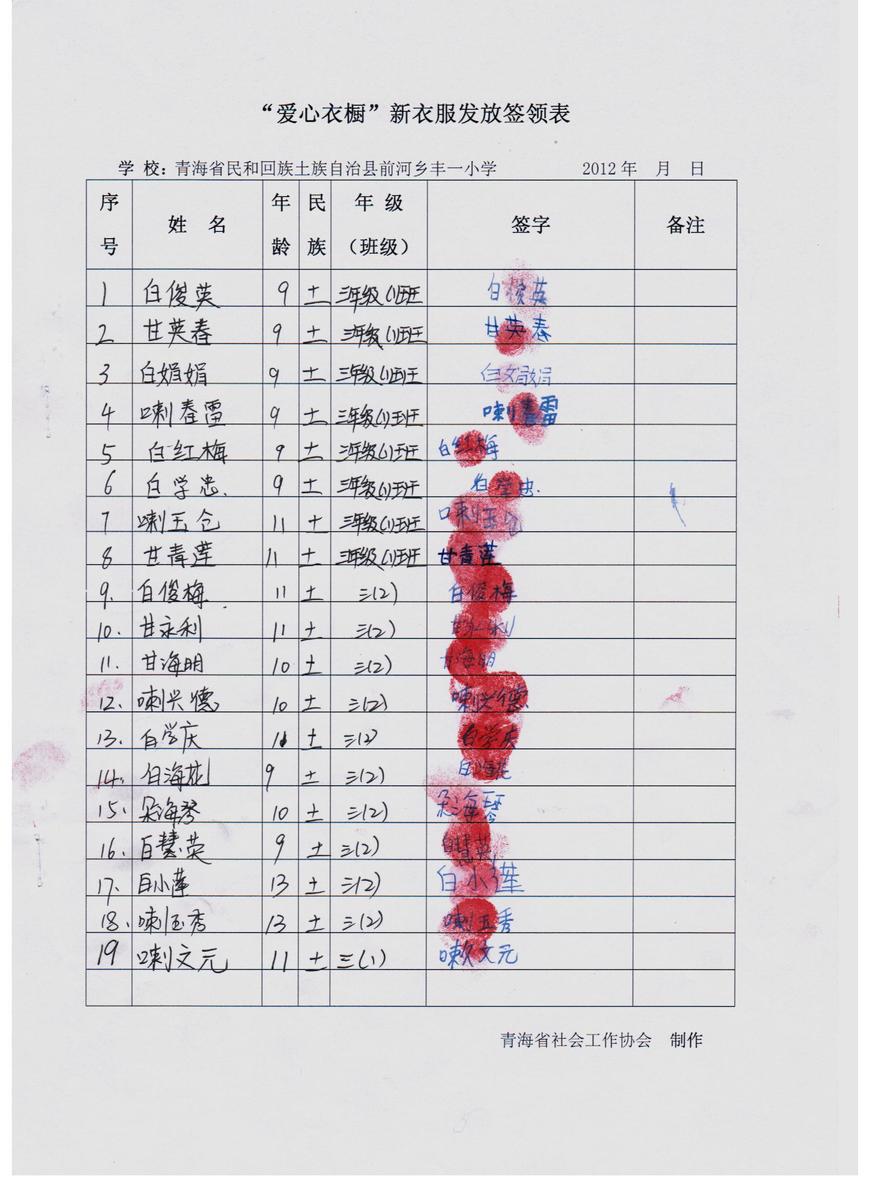 “爱心衣橱”新衣服发放签领表
学 校：青海省民和回族土族自治县前河乡丰一小学 2012年 月 日
序号 姓 名 年龄 民族 年 级（班级） 签字 备注
1 白俊英 9 土 三年级(1)班 白俊英
2 甘英春 9 土 三年级(1)班 甘英春
3 白娟娟 9 土 三年级(1)班
4 喇春雷 9 土 三年级(1)班 喇春雷
5 白红梅 9 土 三年级(1)班 白红梅
6 白学忠. 9 土 三年级(1)班 白学忠.
7 喇玉仓 11 土 三年级(1)班 喇玉仓
8 甘青莲 11 土 三年级(1)班 甘青莲
9. 白俊梅 11 土 三(2) 白俊梅
10. 甘永利 11 土 三(2) 甘永利
11. 甘海明 10 土 三(2) 甘海明
12. 喇兴德 10 土 三(2) 喇兴德
13. 白学庆 土 三(2) 白学庆
14. 白海花 9 土 三(2) 白海花
15. 朵海琴 10 土 三(2) 朵海琴
16. 白慧英 9 土 三(2) 白慧英
17. 白小莲 13 土 三(2) 白小莲
18. 喇玉秀 13 土 三(2) 喇玉秀
19 喇文元 11 土 三(1) 喇文元
青海省社会工作协会 制作